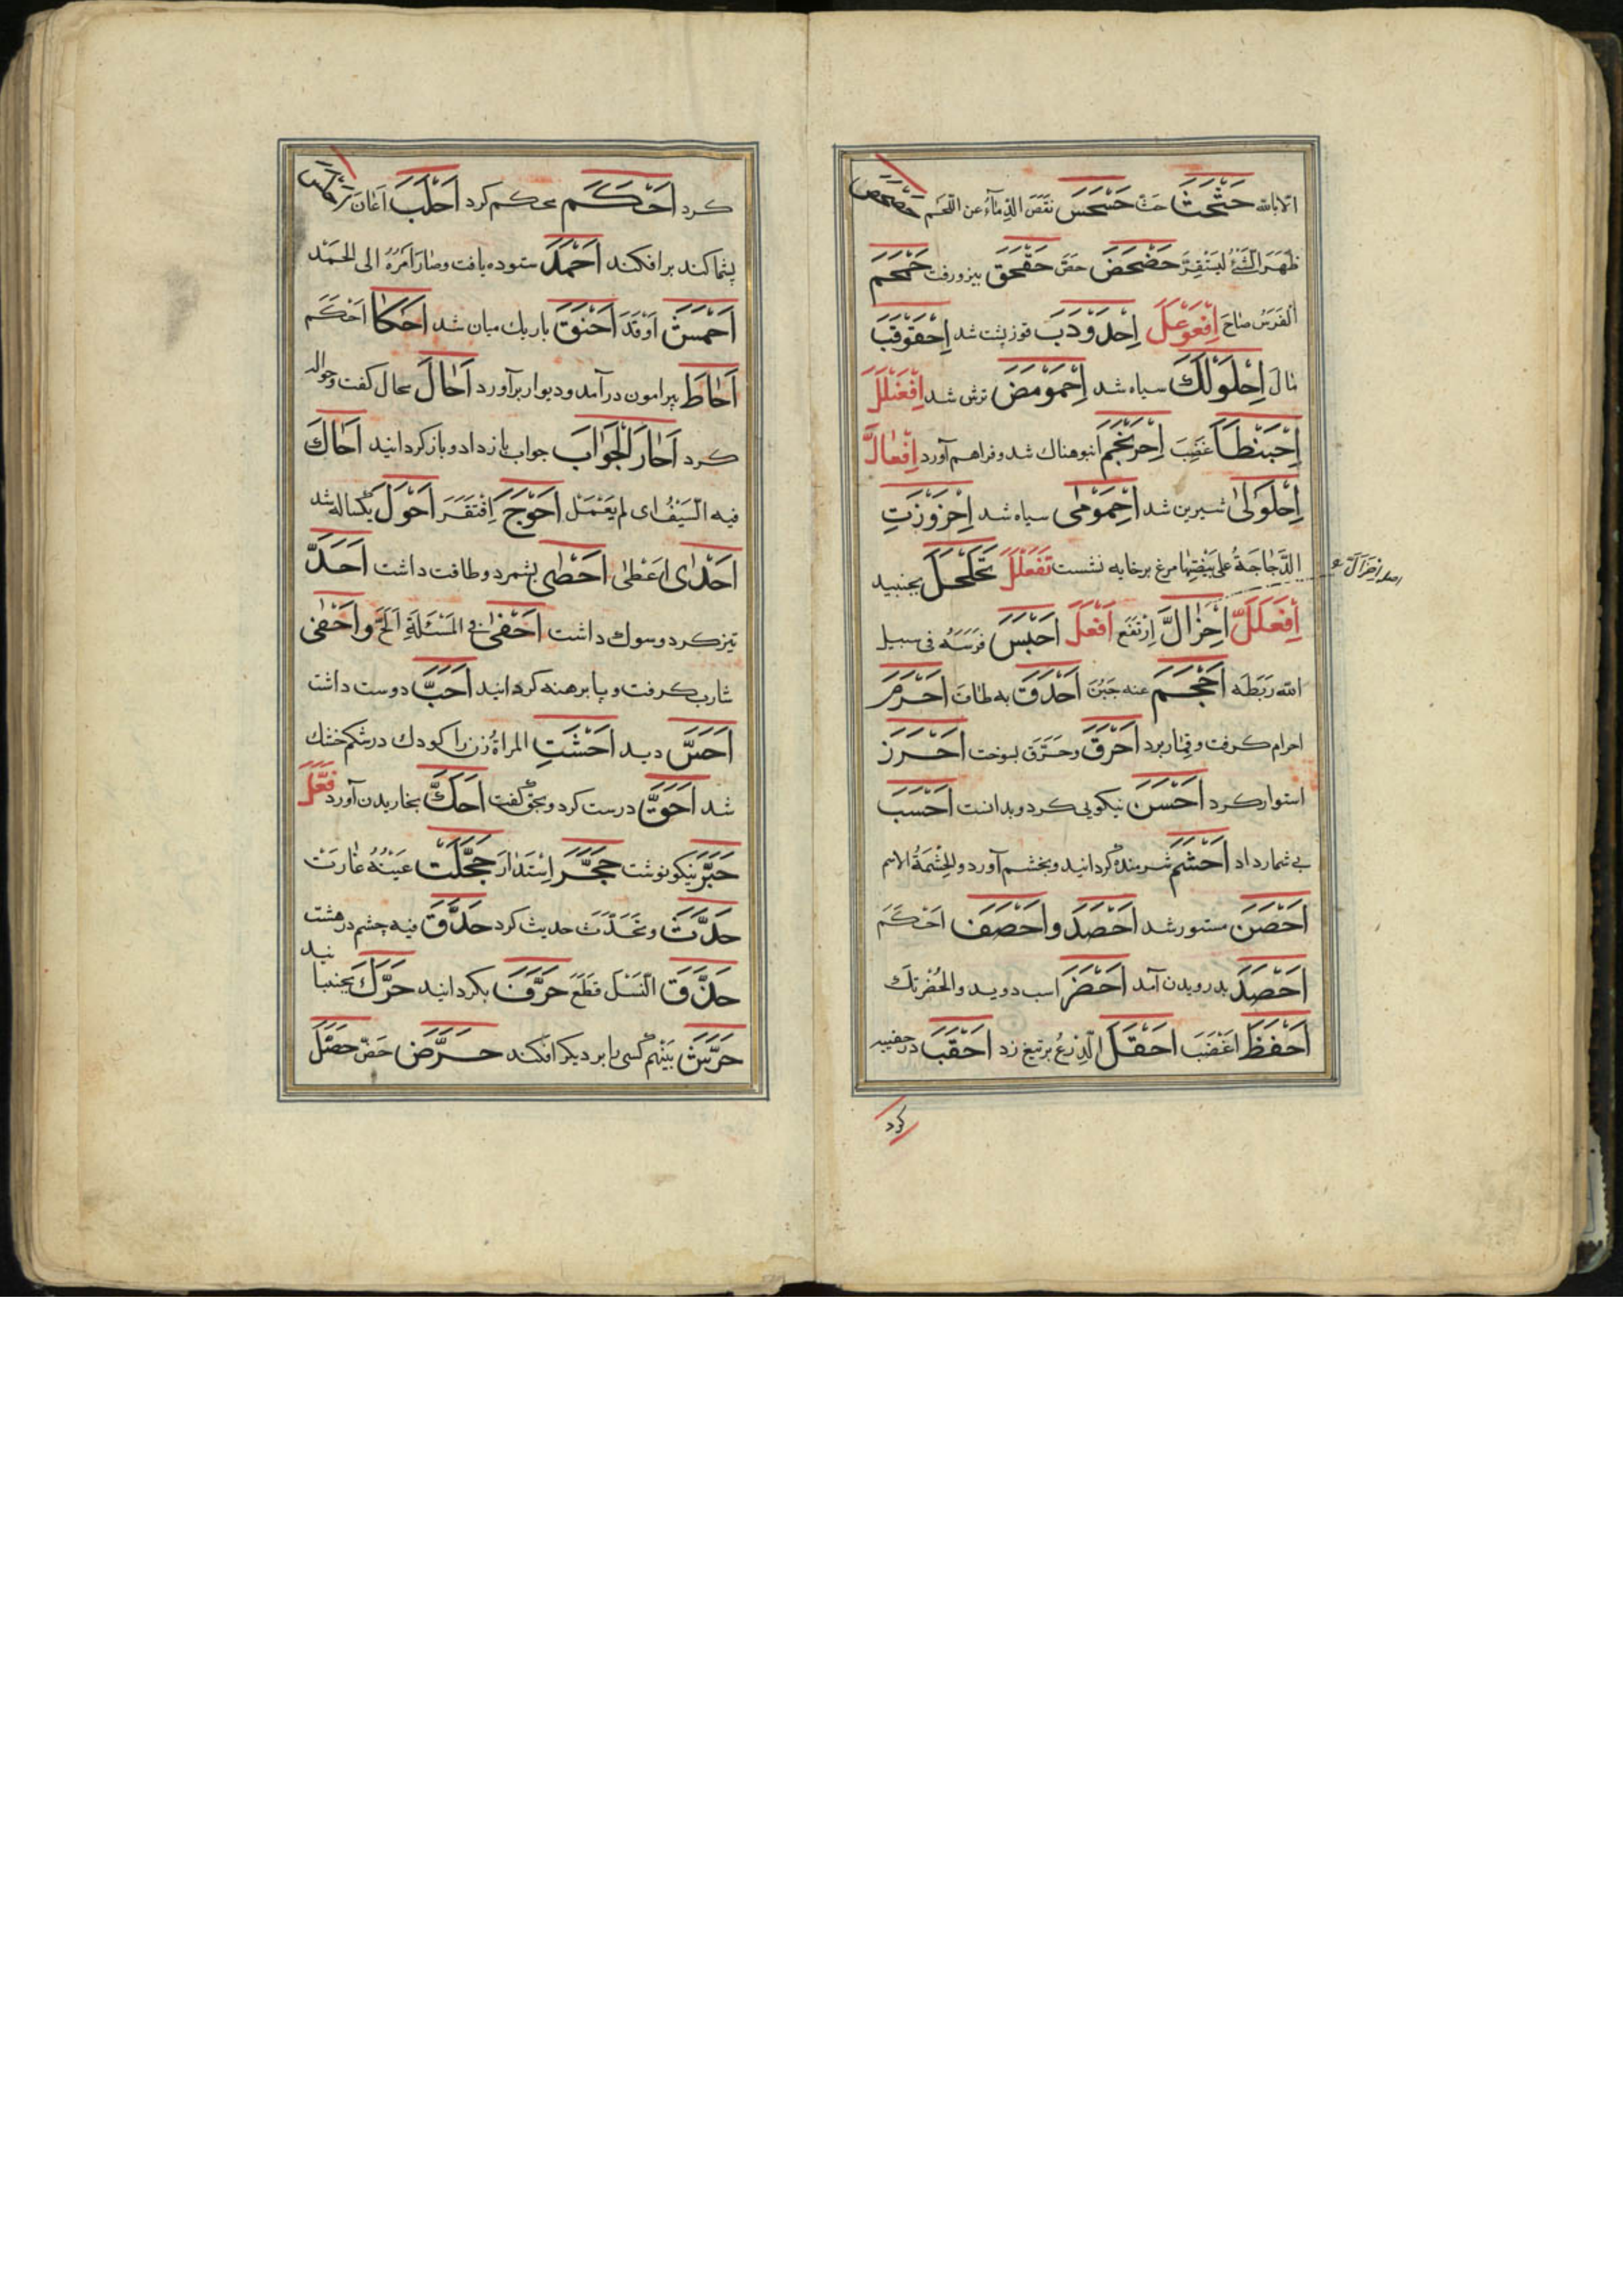 الا بالله حَثْحَثَ حَثَّ حَسْحَسَ نفض الرماد عن اللحم حَصْحَصَ
ظَهَرَ الشئ ليستقر حَضْحَضَ حَضَّ حَقْحَقَ بیز ورفت حَمْحَمَ
الفَرَسُ صاحَ اِفْعَوْعَلَ اِحْدَوْدَبَ قوزپشت شد اِحْقَوْقَبَ
مالَ اِحْلَوْلَكَ سیاه شد اِحْمَوْمَضَ ترش شد اِفْعَنْلَلَ
اِحْبَنْطَأَ غَضِبَ اِحْرَنْجَمَ انبوهناك شد وفراهم آورد اِفْعالَّ
اِحْلَوْلىٰ شیرین شد اِحْمَوْمىٰ سیاه شد اِحْزَوْزَتِ
الدَّجاجَةُ على بَيْضَتِها مرغ برخایه نشست تَفَعْلَلَ تَحَلْحَلَ بجنبید
اِفْعَلَلَّ اِحْزَالَّ اِرْتَفَعَ اَفْعَلَ اَحْبَسَ فَرَسَهُ فى سبیل
الله رَبَطَه اَحْجَمَ عنه جَبُنَ اَحْدَقَ به طافَ اَحْرَمَ
احرام كرفت وقمار برد اَحْرَقَ وحَرَّقَ بسوخت اَحْرَزَ
استوار كرد اَحْسَنَ نیكویى كرد وبدانست اَحْسَبَ
بى شمار داد اَحْشَمَ شرمنده گردانید وبخشم آورد والحِشْمَةُ الاسم
اَحْصَنَ مستور شد اَحْصَدَ واَحْصَفَ اَحْكَمَ
اَحْصَدَ بدرویدن آمد اَحْضَرَ اسب دوید والحُضْر تك
اَحْفَظَ اَغْضَبَ اَحْقَلَ الزرعُ برتیغ زد اَحْقَبَ
كرد
كرد اَحْكَمَ محكم كرد اَحْلَبَ اَعانَ اَحْلَسَ
پشماكند برافكند اَحْمَدَ ستوده یافت وصارَ اَمْرُهُ الى الحَمْد
اَحْمَشَ اَوْقَدَ اَحْنَقَ باریك میان شد اَحْكَأَ اَحْكَمَ
اَحاطَ پیرامون درآمد ودیوار برآورد اَحالَ محال گفت وحواله
كرد اَحارَ الْجَوابَ جواب باز داد وباز گردانید اَحاكَ
فیه السَّيْفُ اى لم یَعْمَلْ اَحْوَجَ اِفْتَقَرَ اَحْوَلَ یكساله شد
اَحْذٰى اَعْطىٰ اَحْصىٰ بشمرد وطاقت داشت اَحَدَّ
تیز كرد وسوك داشت اَحْفىٰ فى المَسْئَلَةِ اَلَحَّ واَحْفىٰ
شارب گرفت وپا برهنه گردانید اَحَبَّ دوست داشت
اَحَسَّ دید اَحَشَّتِ المراةُ زن را كودك در شكم خشك
شد اَحَقَّ درست كرد وبحق گفت اَحَكَّ بخاریدن آورد فَعَّلَ
حَبَّرَ نیكو نوشت حَجَّرَ اِسْتَدارَ حَجَّلَتْ عَيْنُهُ غارَتْ
حَدَّثَ وتَحَدَّثَ حدیث كرد حَدَّقَ فیه چشم در
حَذَّقَ قَطَعَ حَرَّفَ بگردانید حَرَّكَ بجنبانید
حَرَّشَ بَيْنَهُم كسى را بر دیگر افكند حَرَّضَ حَضَّ حَصَّلَ